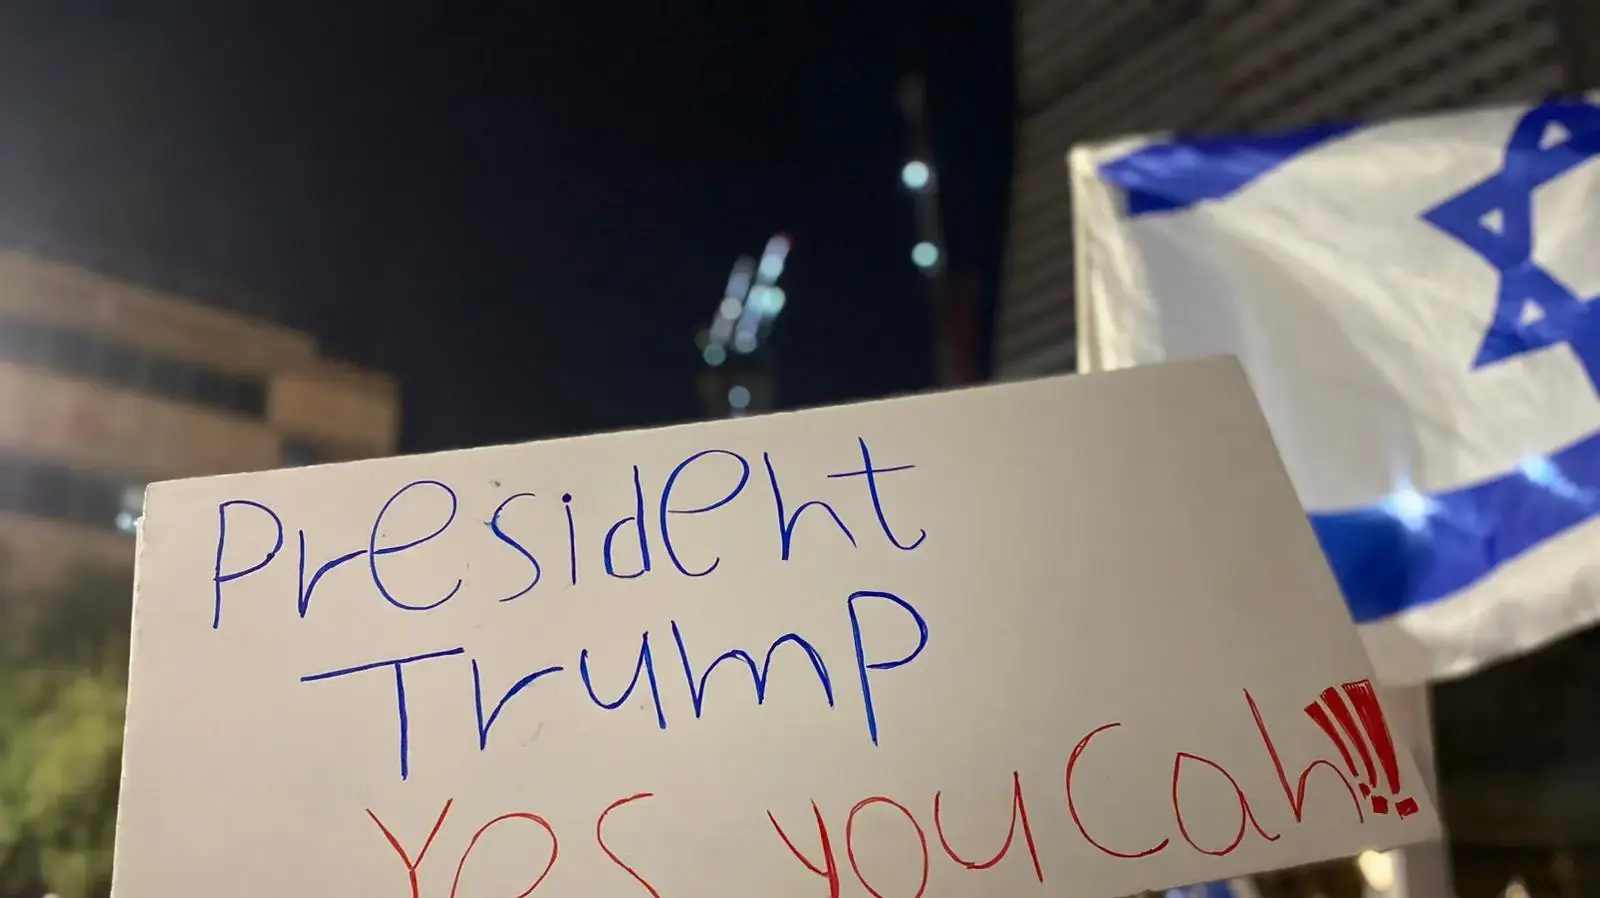 President
Trump
Yes you can!!!